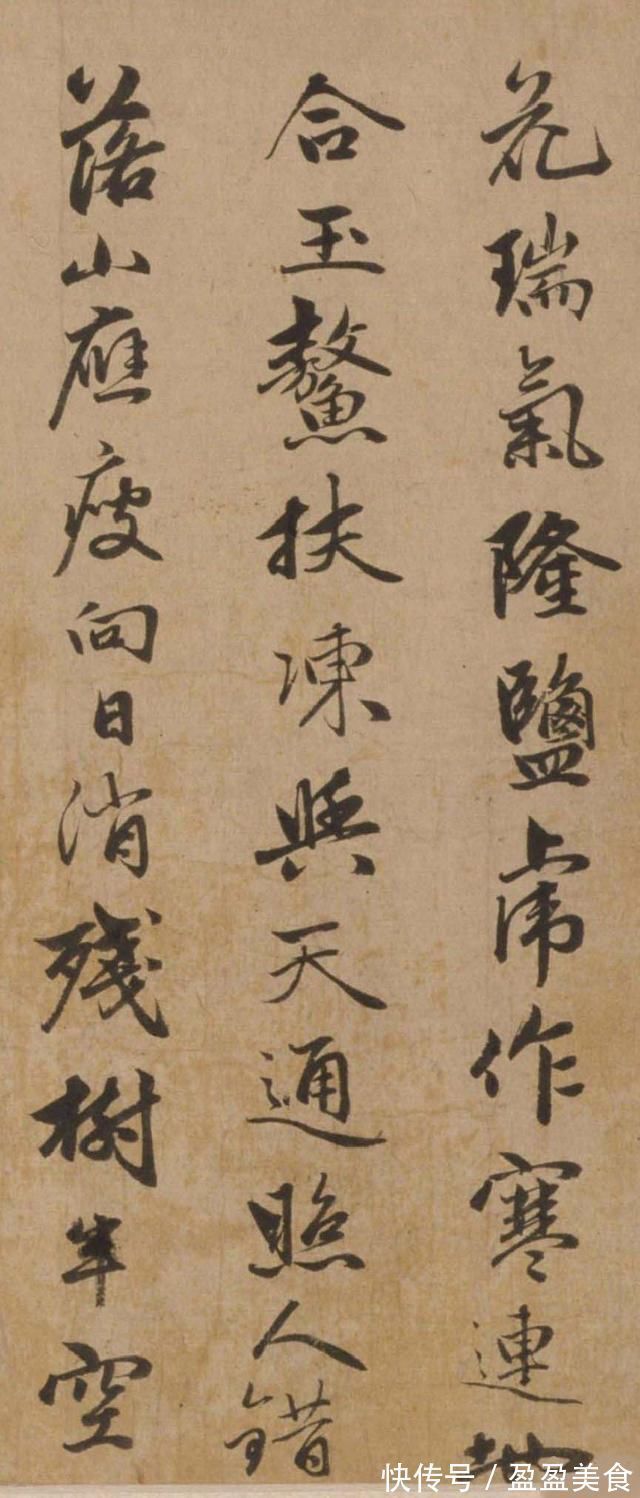 花瑞氣隆鹽虎作寒連地
合玉鰲扶凍與天通照人錯
落山應瘦向日消殘樹半空
快传号 / 盈盈美食